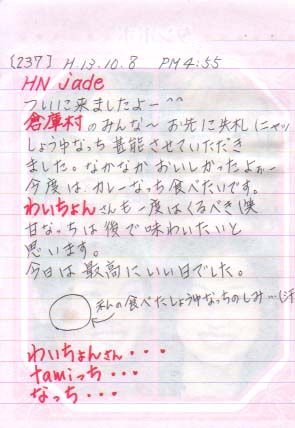 [237] H.13.10.8 PM 4:55
HN jade
ついに来ましたよー^^
倉庫村のみんな〜 お先に失礼(ニャッ
しょう中なっち 甚能させていただき
ました。なかなかおいしかったよぉー
今度は カレーなっち食べたいです。
わいちょんさんも一度はくるべき(笑
甘なっちは後で味わいたいと
思います。
今日は 最高にいい日でした。
私の食べたしょう中なっちのしみ…(汗
わいちょんさん・・・
tamiっち・・・
なっち・・・